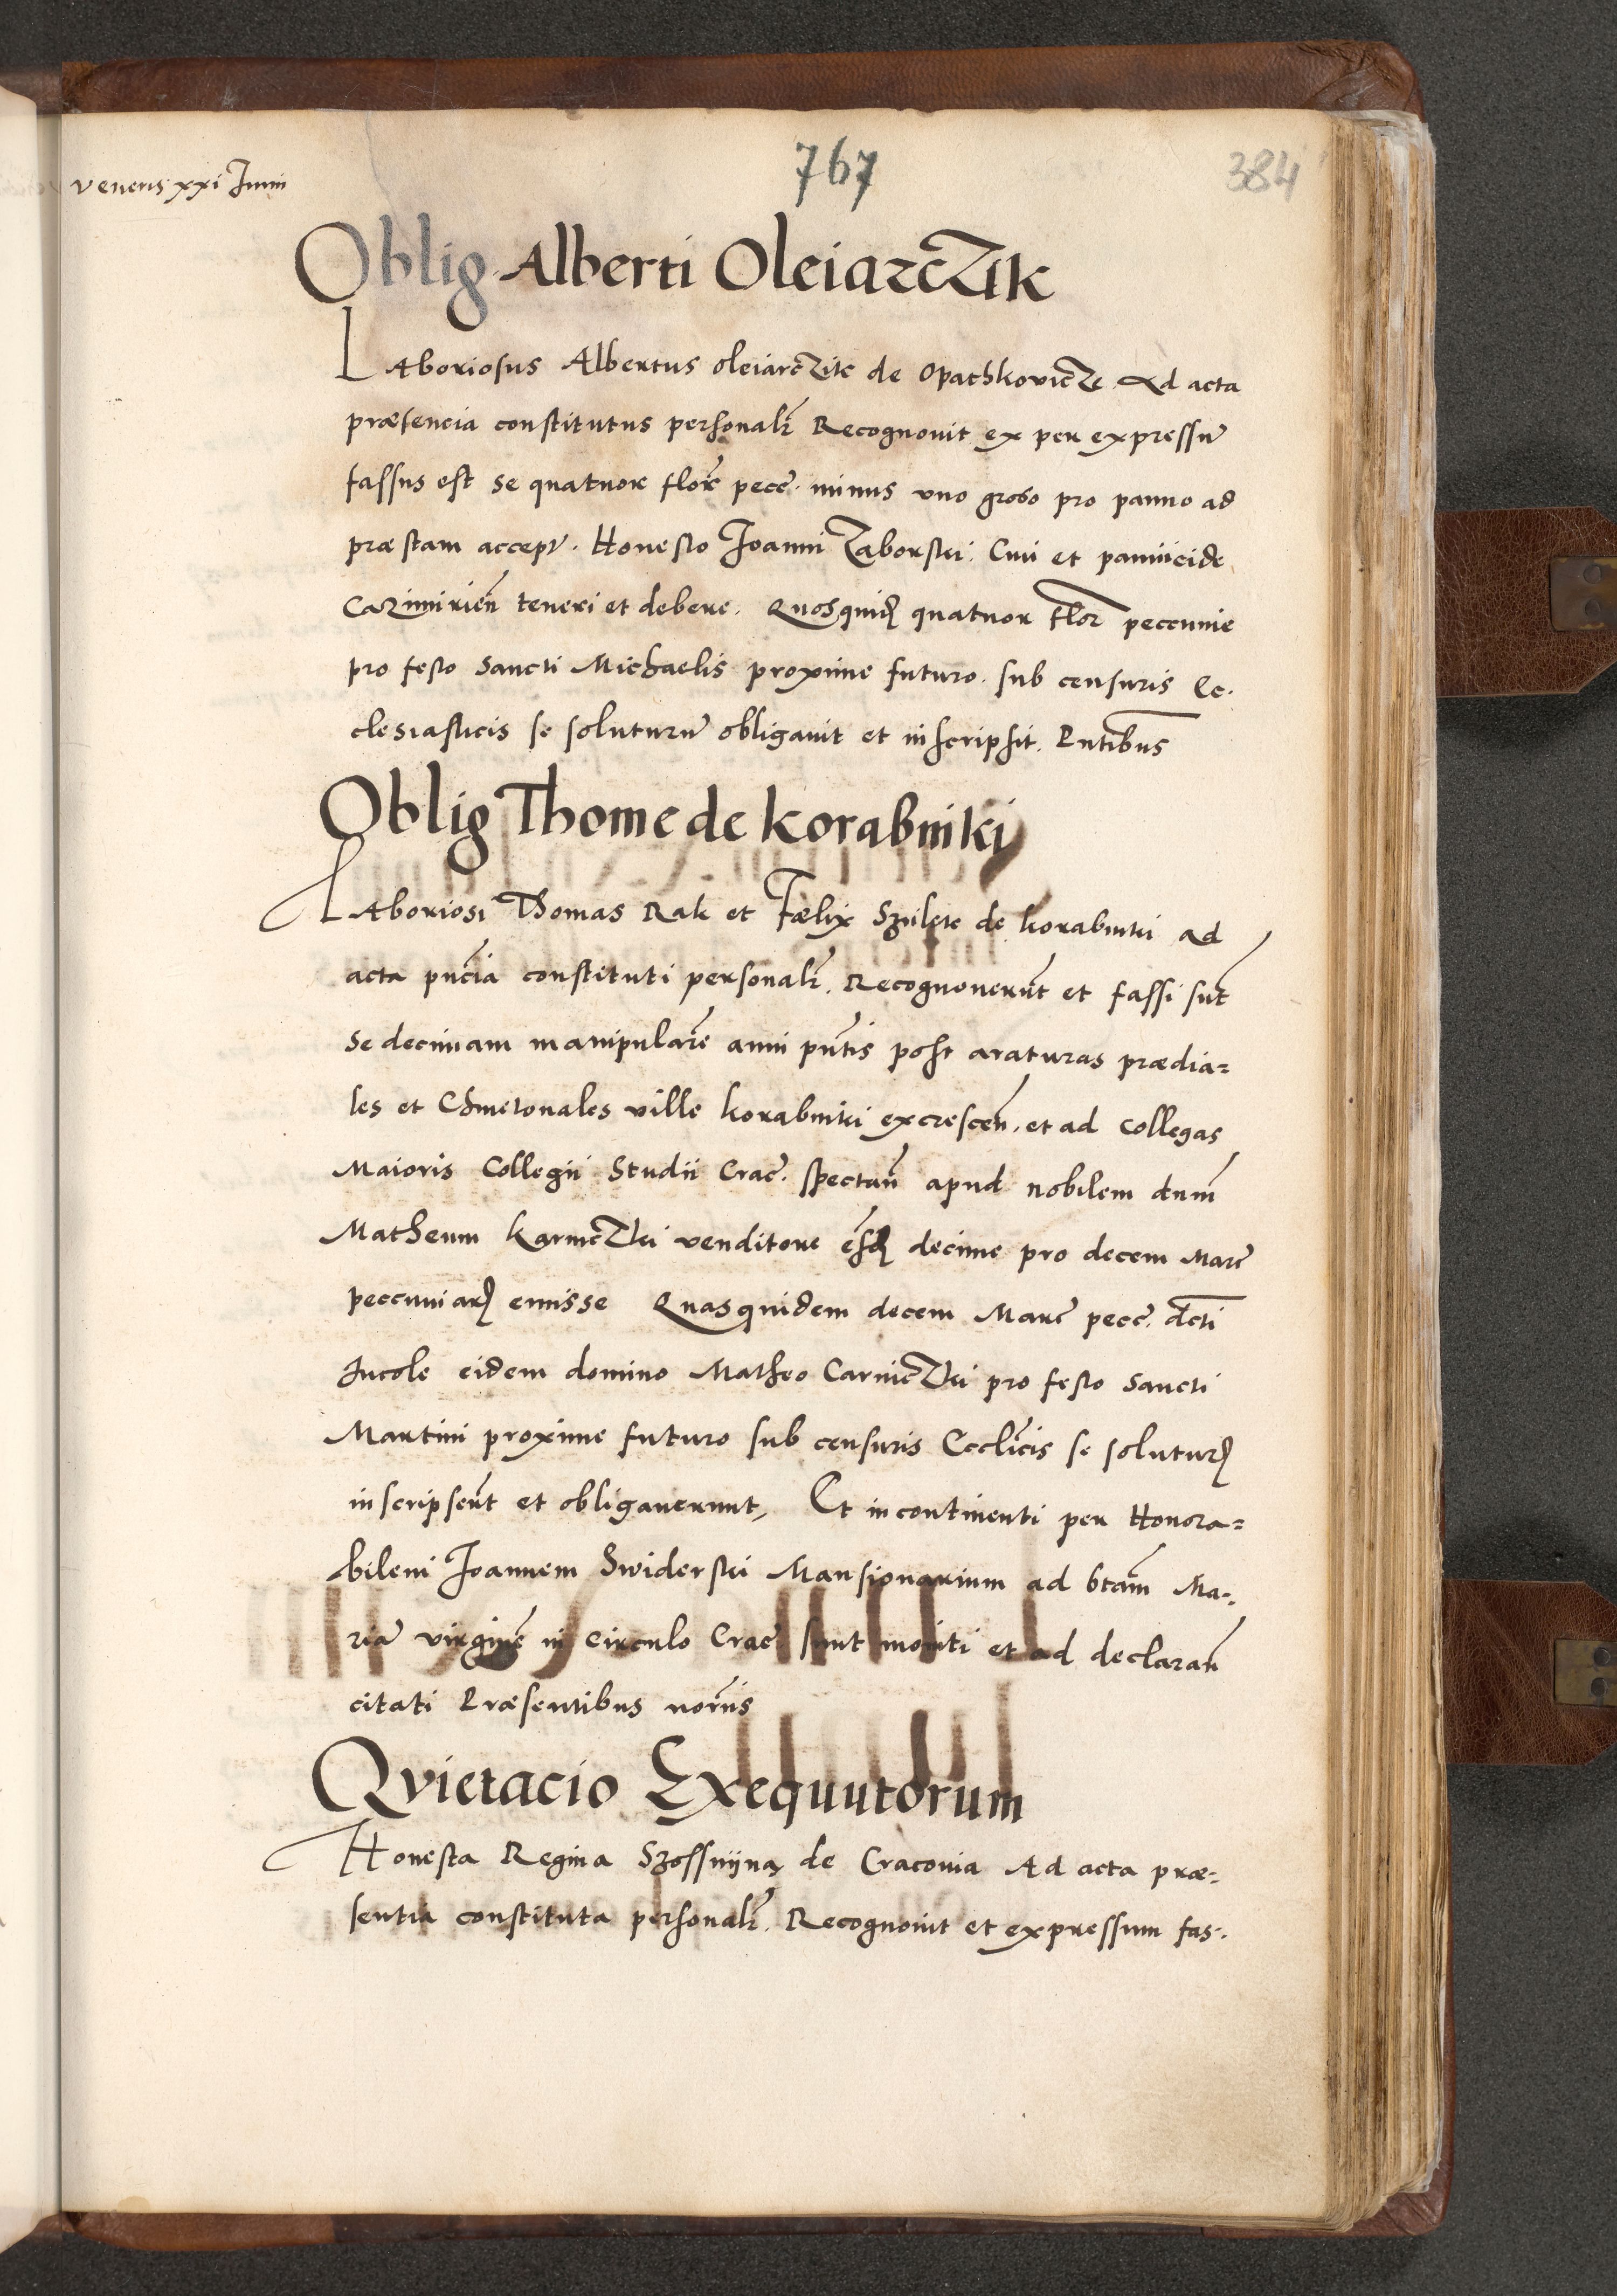 767
384
Veneris xxi Junii
Oblig. Alberti Oleiarczik
LAboriosus Albertus oleiarczik de Opathkovicze Ad acta
præsencia constitutus personalr̃ Recognovit ex per expressũ
fassus est se quatuor florẽ pecc̃. minus uno grosso pro panno ad
præstam accept̃. Honesto Joanni Zaborski. Civi et pannicide
Cazimirieñ teneri et debere. Quosquid̃ quatuor flor̃ peccunie
pro festo Sancti Michaelis proxime futuro. sub censuris Ec.
clesiasticis se soluturũ obligavit et inscripsit. Pñtibus
Oblig Thome de Korabniki
LAboriosi Thomas Rak et Fælix de korabniki ad
acta pñcia constituti personalr̃. Recognoverũt et fassi sũt
se decimam manipularẽ anni pñtis post araturas prædia=
les et Chmetonales ville korabniki excresceñ. et ad Collegas
Maioris Collegii Studii Crac̃. spectañ apud nobilem dnum̃
Matheum Karniczki venditore decime pro decem Marc̃
peccuniar̃ emisse Quasquidem decem Marc̃ pecc̃. dcti
Incole eidem domino Matheo Carniczki pro festo Sancti
Martini proxime futuro sub censuris Ecclicis se solutur̃
inscripserũt et obligaverunt, Et incontinenti per Honora=
bilem Joannem Swiderski Mansionarium ad btam̃ Ma-
riã virginẽ in Circulo Crac̃ sunt moniti et ad declarañ
citati Præsentibus nor̃iis
Qvietacio Exequutorum
Honesta Regina de Craconia Ad acta præ-
sentia constituta personalr̃. Recognovit et expressum fas-